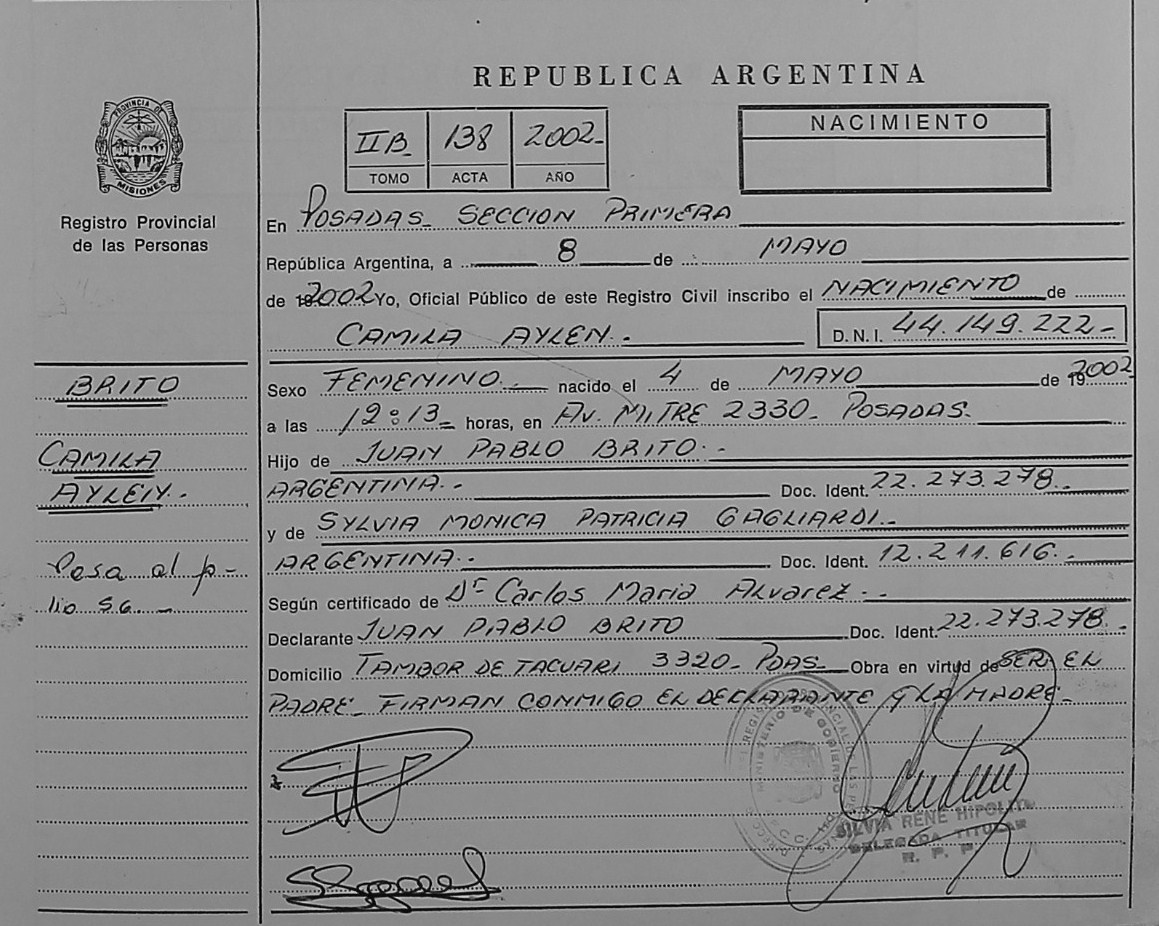 REPUBLICA ARGENTINA
PROVINCIA DE MISIONES
Registro Provincial
de las Personas
IIB 138 2002-
TOMO ACTA AÑO
NACIMIENTO
En POSADAS_ SECCION PRIMERA
República Argentina, a 8 de MAYO
de 2002 Yo, Oficial Público de este Registro Civil inscribo el NACIMIENTO de
CAMILA AYLEN.- D.N.I. 44.149.222-
BRITO
CAMILA
AYLEN.-
Pasa al fo-
lio 56 -
Sexo FEMENINO nacido el 4 de MAYO de 19 2002
a las 12:13 horas, en AV. MITRE 2330- POSADAS.
Hijo de JUAN PABLO BRITO.-
ARGENTINA.- Doc. Ident. 22.273.278.-
y de SYLVIA MONICA PATRICIA GAGLIARDI.-
ARGENTINA.- Doc. Ident. 12.211.616.-
Según certificado de Dr Carlos Maria Alvarez.-
Declarante JUAN PABLO BRITO Doc. Ident. 22.273.278.-
Domicilio TAMBOR DE TACUARI 3320- PDAS- Obra en virtud de SER EL
PADRE_ FIRMAN CONMIGO EL DECLARANTE Y LA MADRE-
MINISTERIO DE GOBIERNO
SILVIA RENE HIPOLITO
DELEGADA TITULAR
R. P. P.